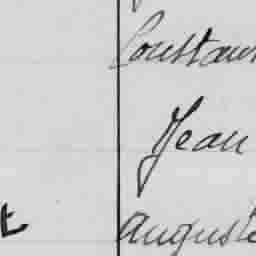 Constan
Jean
t auguste